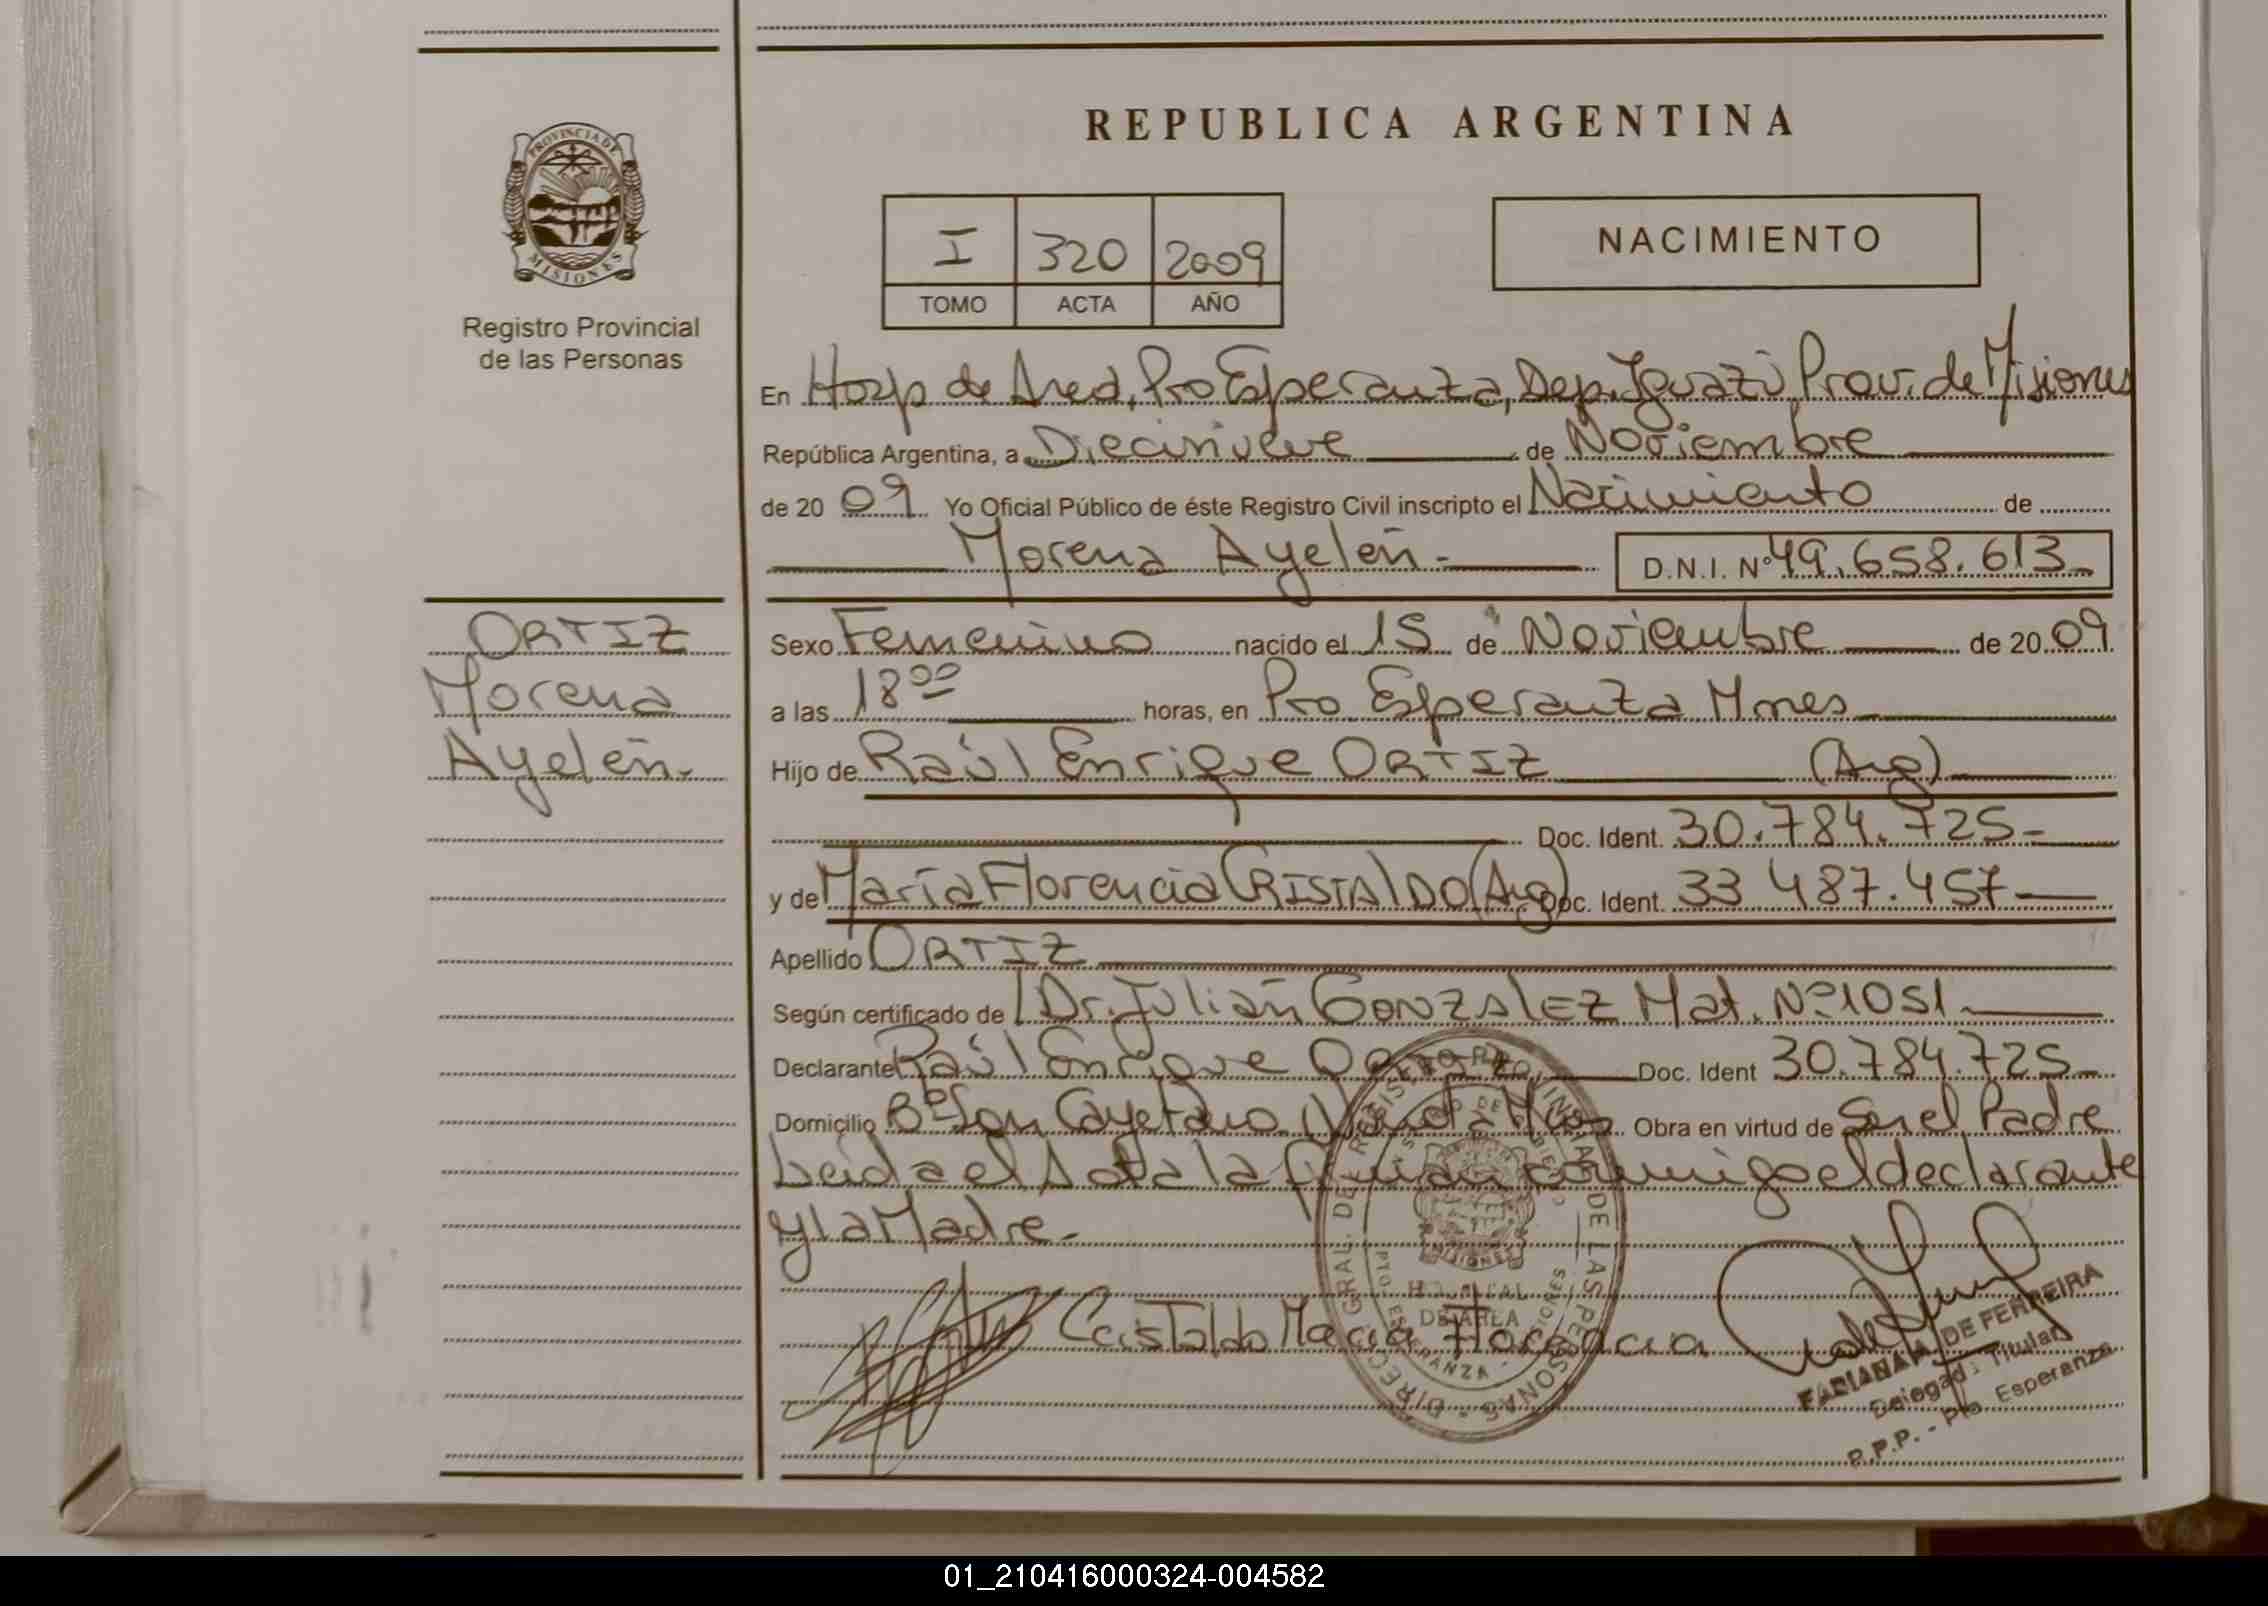 REPUBLICA ARGENTINA
PROVINCIA DE
MISIONES
Registro Provincial
de las Personas
I 320 2009
TOMO ACTA AÑO
NACIMIENTO
En Hosp de Area, Pto Esperanza, Dep. Iguazú Prov. de Misiones
República Argentina, a Diecinueve de Noviembre
de 20 09 Yo Oficial Público de éste Registro Civil inscripto el Nacimiento de
Morena Ayelén.-
D.N.I. Nº 49.658.613
ORTIZ
Morena
Ayelén.
Sexo Femenino nacido el 15 de Noviembre de 20 09
a las 18ºº horas, en Pto Esperanza Mnes
Hijo de Raúl Enrique ORTIZ (Arg)
Doc. Ident. 30.784.725-
y de María Florencia CRISTALDO (Arg) Doc. Ident. 33 487.457-
Apellido ORTIZ
Según certificado de Dr. Julián GONZALEZ Mat. Nº 1051
Declarante Raúl Enrique Ortiz Doc. Ident 30.784.725-
Domicilio Bº San Cayetano Obra en virtud de Ser el Padre
Leida el Acta la firman conmigo el declarante
y la Madre.-
Cristaldo Maria Florencia
DIREC. GRAL. DEL REGISTRO PROVINCIAL DE LAS PERSONAS
MISIONES
HOSPITAL
DE AREA
PTO. ESPERANZA - MISIONES
FABIANA A. DE FERREIRA
Delegada Titular
R.P.P. - Pto. Esperanza
01_210416000324-004582